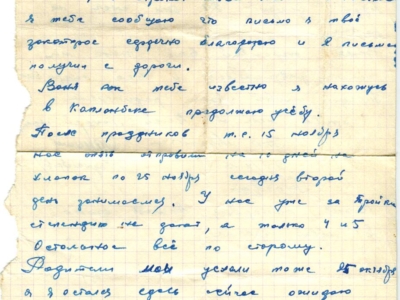 я тебе сообщаю что письмо я твоё
за которое сердечно благодарю и я письмо
получил с дороги.
Ваня как тебе известно я нахожусь
в Капланбеке продолжаю учёбу.
После праздников т.е. 15 ноября
нас опять направили на 10 дней на
хлопок по 25 ноября сегодня второй
день занимаемся. У нас уже за тройки
стипендию не дают, а только 4 и 5
Остальное всё по старому.
Родители мои уехали тоже 25 октября
а я остался здесь сейчас ожидаю